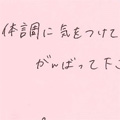 体調に気をつけて
がんばって下